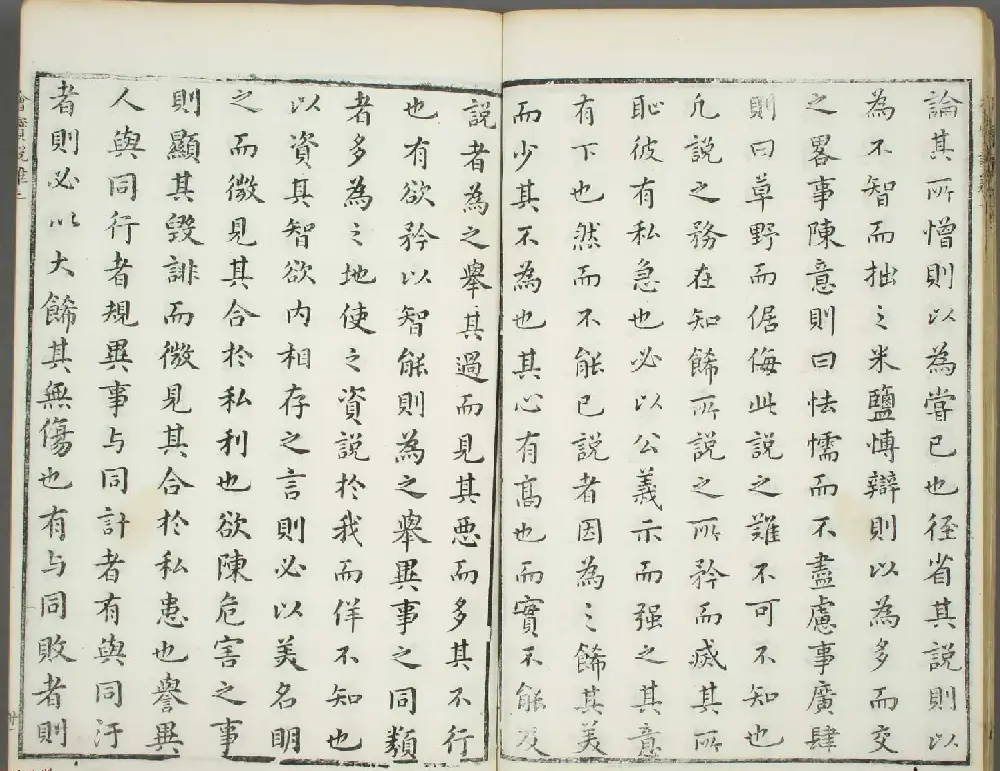 論其所憎則以為嘗已也徑省其説則以
為不智而拙之米鹽博辯則以為多而交
之畧事陳意則曰怯懦而不盡慮事廣肆
則曰草野而倨侮此説之難不可不知也
凢説之務在知餙所説之所矜而滅其所
恥彼有私急也必以公義示而强之其意
有下也然而不能已説者因為之餙其美
而少其不為也其心有髙也而實不能及
説者為之舉其過而見其悪而多其不行
也有欲矜以智能則為之舉異事之同類
者多為之地使之資説於我而佯不知也
以資其智欲内相存之言則必以美名明
之而微見其合於私利也欲陳危害之事
則顯其毀誹而微見其合於私患也譽異
人與同行者規異事与同計者有與同汙
者則必以大餙其無傷也有与同敗者則